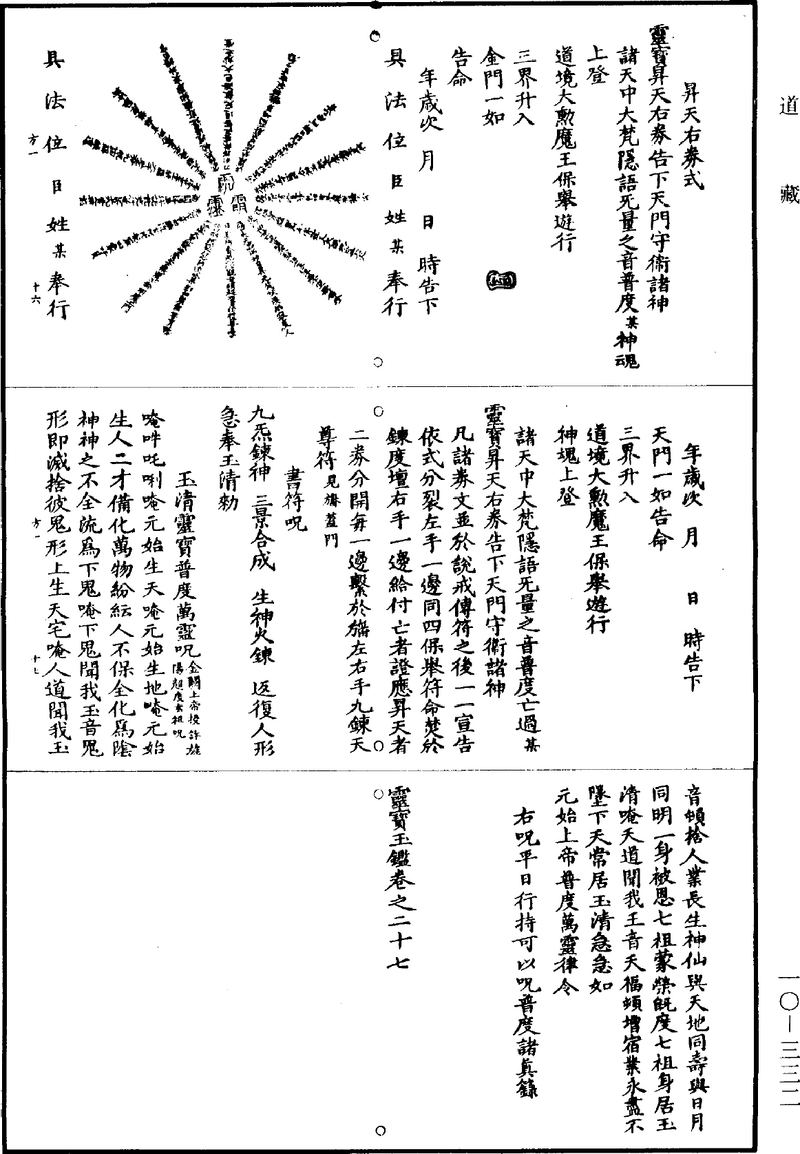 道藏
昇天右券式
靈寶昇天右券告下天門守衛諸神
諸天中大梵隱語无量之音普度某神魂
上登
道境大勲魔王保舉遊行
三界升入
金門一如
告命
年歲次 月 日 時告下
具法位臣姓某奉行
具法位臣姓某奉行
方一 十六
年歲次 月 日 時告下
天門一如告命
三界升入
道境大勲魔王保舉遊行
神魂上登
諸天中大梵隱語无量之音普度亡過某
靈寶昇天右券告下天門守衛諸神
凡諸券文並於說戒傳符之後一一宣告
依式分裂左手一邊同四保舉符命焚於
鍊度壇右手一邊給付亡者證應昇天者
二券分開每一邊繫於旛左右手九鍊天
尊符見旛蓋門
書符呪
九炁鍊神 三景合成 生神火鍊 返復人形
急奉玉清勑
玉清靈寶普度萬靈呪金闕上帝授許旌陽超度玄祖呪
唵吽吒唎唵元始生天唵元始生地唵元始
生人二才備化萬物紛紜人不保全化爲陰
神神之不全流爲下鬼唵下鬼聞我玉音鬼
形即滅捨彼鬼形上生天宅唵人道聞我玉
方一 十七
音頓捨人業長生神仙與天地同壽與日月
同明一身被恩七祖蒙榮旣度七祖身居玉
清唵天道聞我王音天福頓增宿業永盡不
墜下天常居玉清急急如
元始上帝普度萬靈律令
右呪平日行持可以呪普度諸眞籙
靈寶玉鑑卷之二十七
一〇—三三二